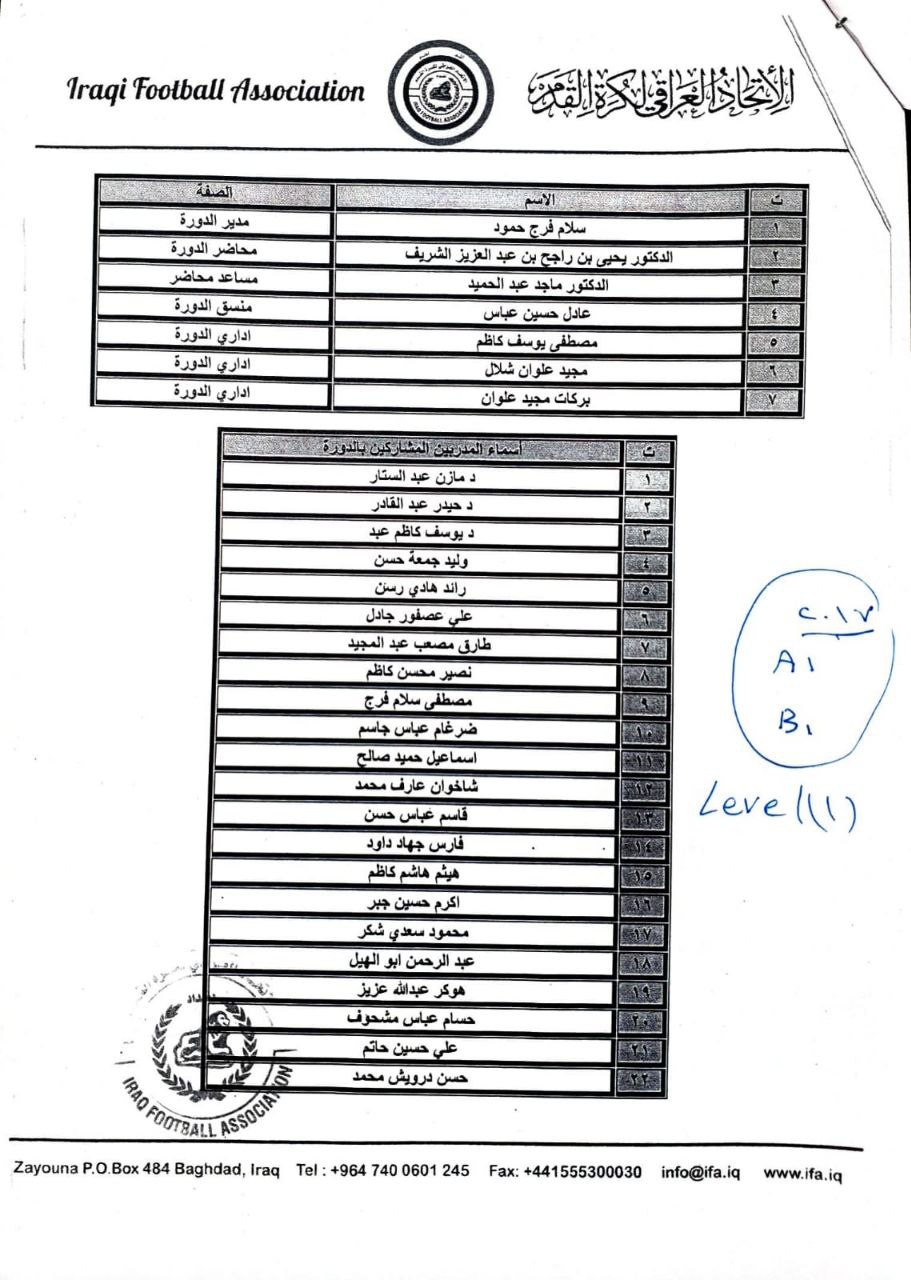 Iraqi Football Association
الإتحاد العراقي لكرة القدم
IRAQ FOOTBALL ASSOCIATION
ت الاسم الصفة
١ سلام فرج حمود مدير الدورة
٢ الدكتور يحيى بن راجح بن عبد العزيز الشريف محاضر الدورة
٣ الدكتور ماجد عبد الحميد مساعد محاضر
٤ عادل حسين عباس منسق الدورة
٥ مصطفى يوسف كاظم اداري الدورة
٦ مجيد علوان شلال اداري الدورة
٧ بركات مجيد علوان اداري الدورة
ت أسماء المدربين المشاركين بالدورة
١ د مازن عبد الستار
٢ د حيدر عبد القادر
٣ د يوسف كاظم عبد
٤ وليد جمعة حسن
٥ رائد هادي رسن
٦ علي عصفور جادل
٧ طارق مصعب عبد المجيد
٨ نصير محسن كاظم
٩ مصطفى سلام فرج
١٠ ضرغام عباس جاسم
١١ اسماعيل حميد صالح
١٢ شاخوان عارف محمد
١٣ قاسم عباس حسن
١٤ فارس جهاد داود
١٥ هيثم هاشم كاظم
١٦ اكرم حسين جبر
١٧ محمود سعدي شكر
١٨ عبد الرحمن ابو الهيل
١٩ هوكر عبدالله عزيز
٢٠ حسام عباس مشحوف
٢١ علي حسين حاتم
٢٢ حسن درويش محمد
٢٠١٧
A١
B١
Level(١)
بغداد
IRAQ FOOTBALL ASSOCIATION
Zayouna P.O.Box 484 Baghdad, Iraq Tel : +964 740 0601 245 Fax: +441555300030 info@ifa.iq www.ifa.iq